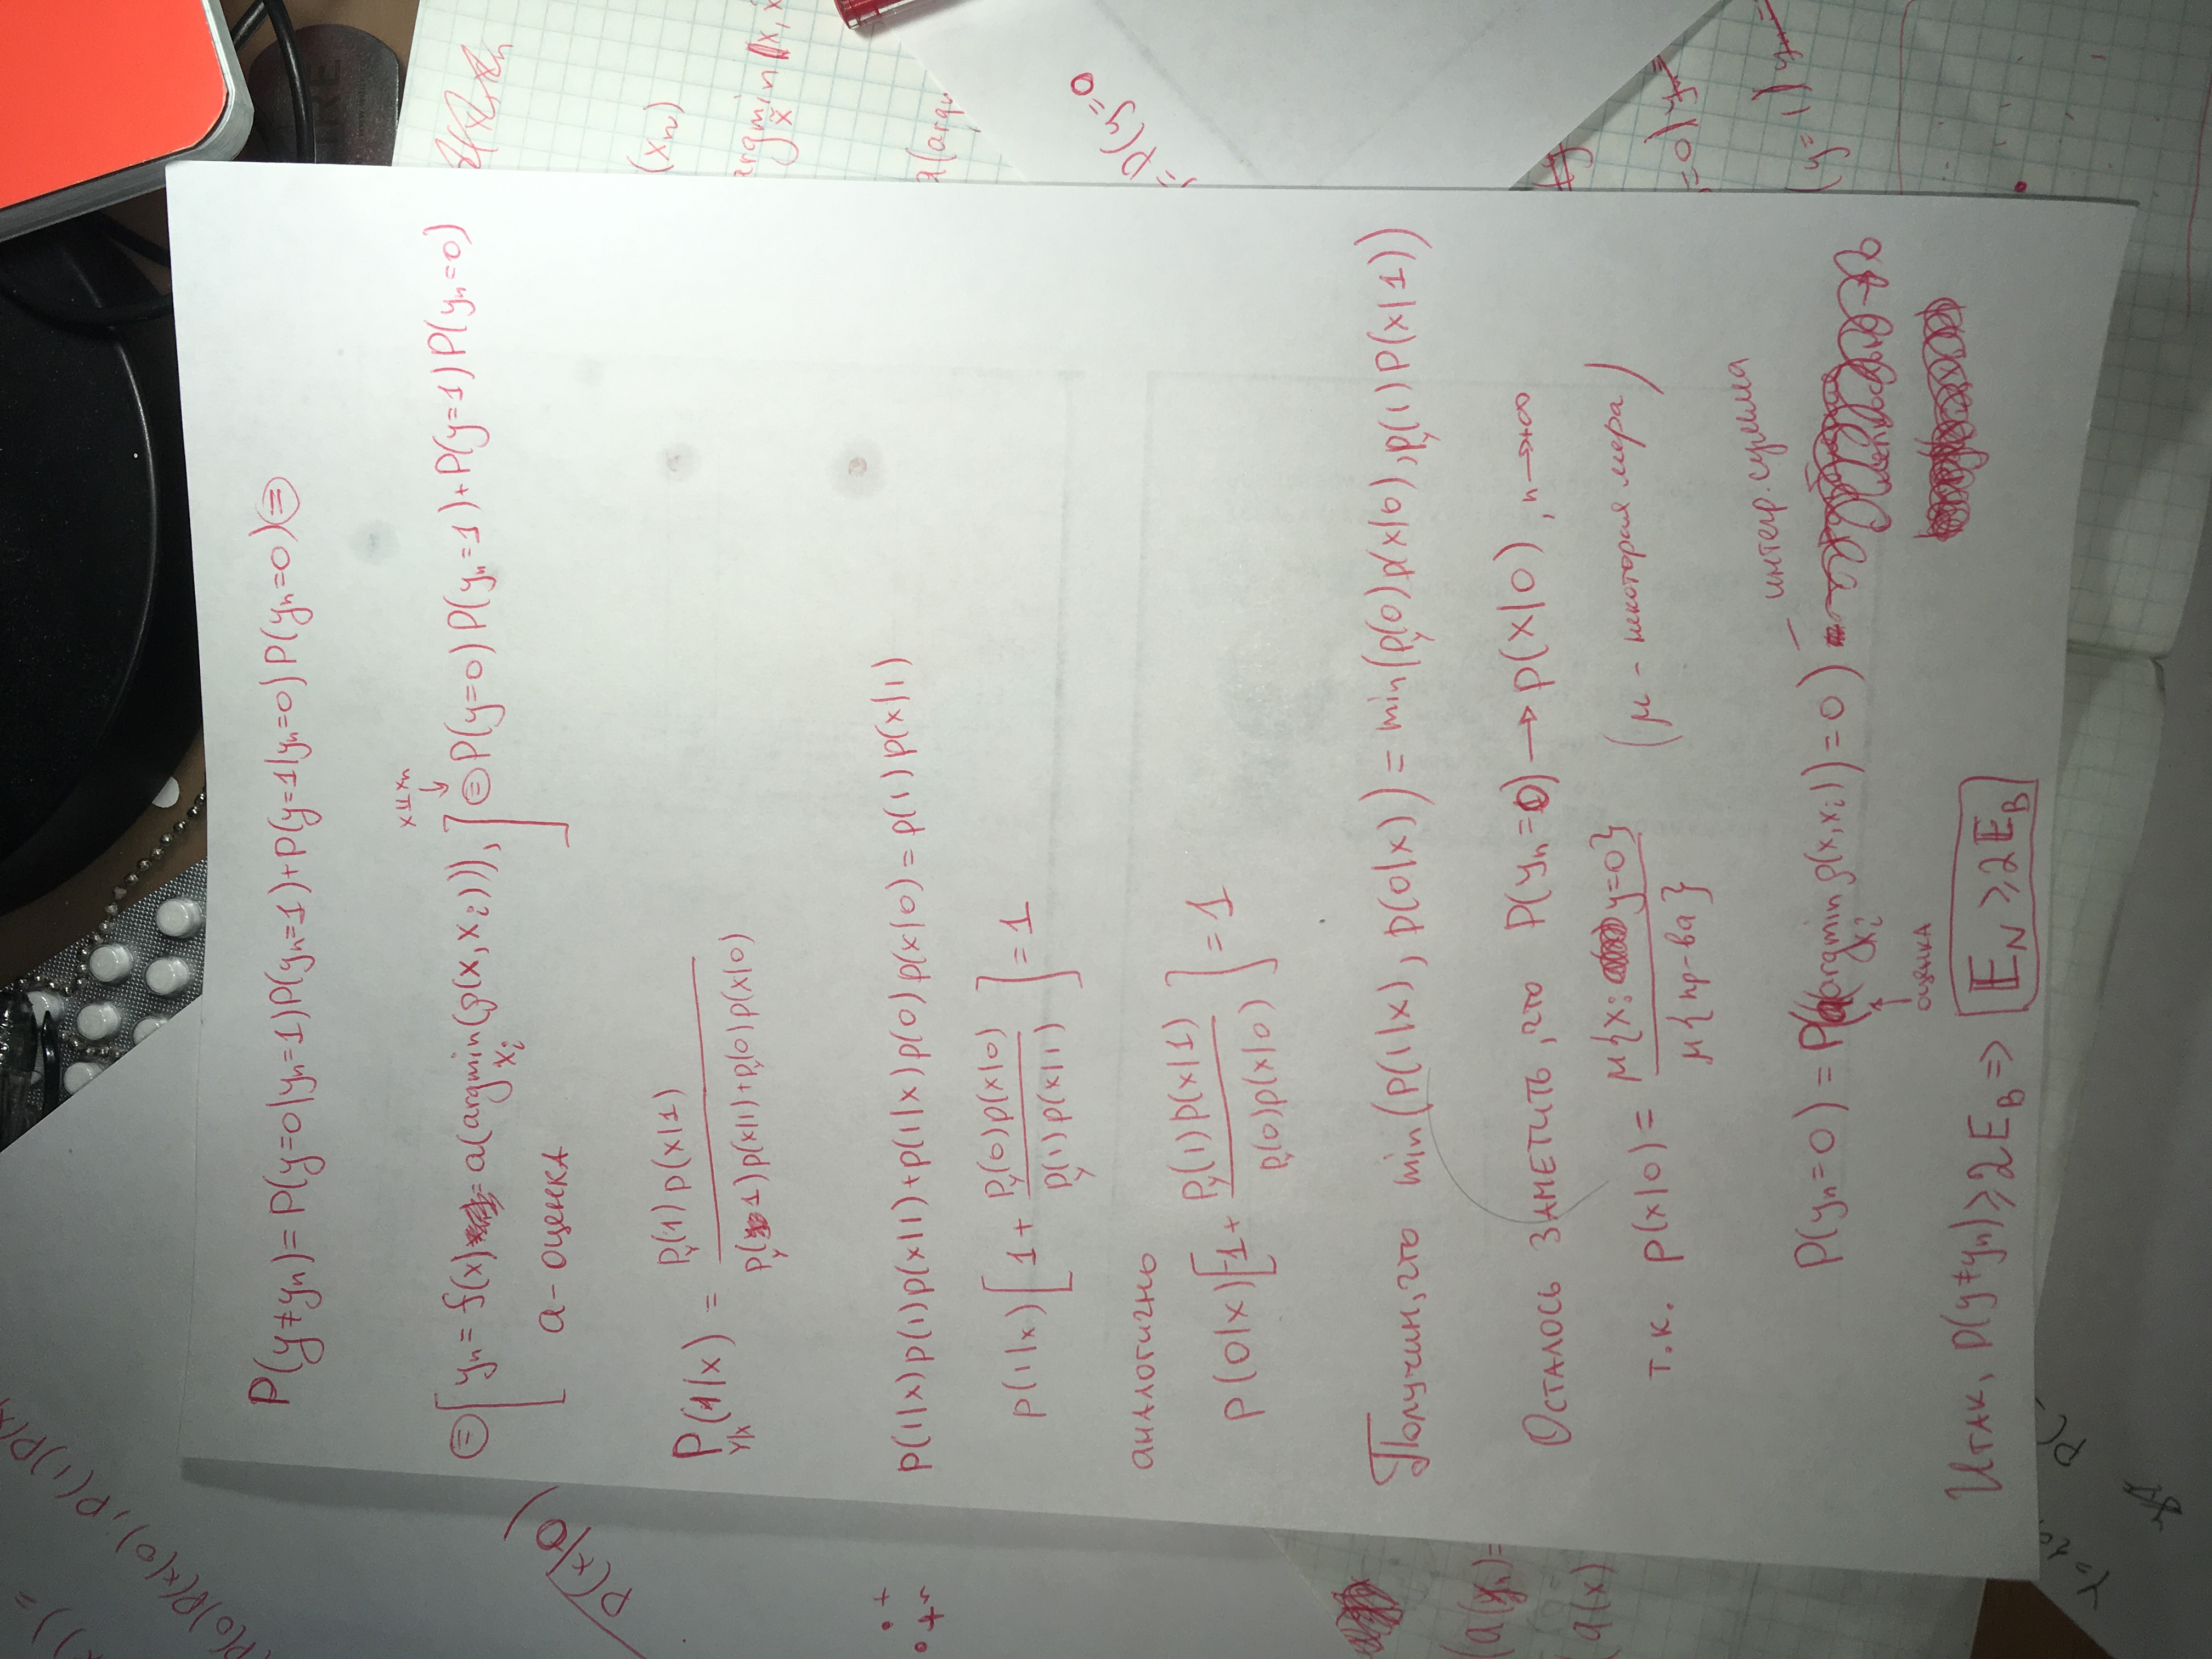 P(y≠yₙ) = P(y=0|yₙ=1)P(yₙ=1)+P(y=1|yₙ=0) P(yₙ=0) ⊜
x⫫xₙ
↓
⊜ [ yₙ = f(x) = a(argmin(ρ(x,xᵢ))), ] ⊜ P(y=0) P(yₙ=1)+P(y=1)P(yₙ=0)
xᵢ
a - оценка
P_{Y|x}(1|x) = P_Y(1) p(x|1) / P_Y(1)p(x|1)+P_Y(0)p(x|0)
p(1|x)p(1)p(x|1)+p(1|x)p(0)p(x|0) = p(1)p(x|1)
p(1|x)[1 + P_Y(0)p(x|0) / P_Y(1)p(x|1)] = 1
аналогично
p(0|x)[1+ P_Y(1)p(x|1) / P_Y(0)p(x|0)] = 1
Получим, что min(P(1|x), p(0|x)) = min(P_Y(0)p(x|0), P_Y(1)P(x|1))
Осталось заметить, что P(yₙ=0) → p(x|0), n→+∞
т.к. p(x|0) = μ{x: y=0} / μ{пр-ва} (μ - некоторая мера)
интегр. сумма
P(yₙ=0) = P(a(argmin ρ(x,xᵢ))=0) –
xᵢ
↑
оценка
Итак, P(y≠yₙ) ≥ 2E_B => E_N ≥ 2E_B
P(0)P(x|0), P(1)P(x
P(x|0)
(xₙ)
argmin
x̃
a(argm
= P(y=0
(a(yₙ)=
(a(x)
=0)
(y=1)